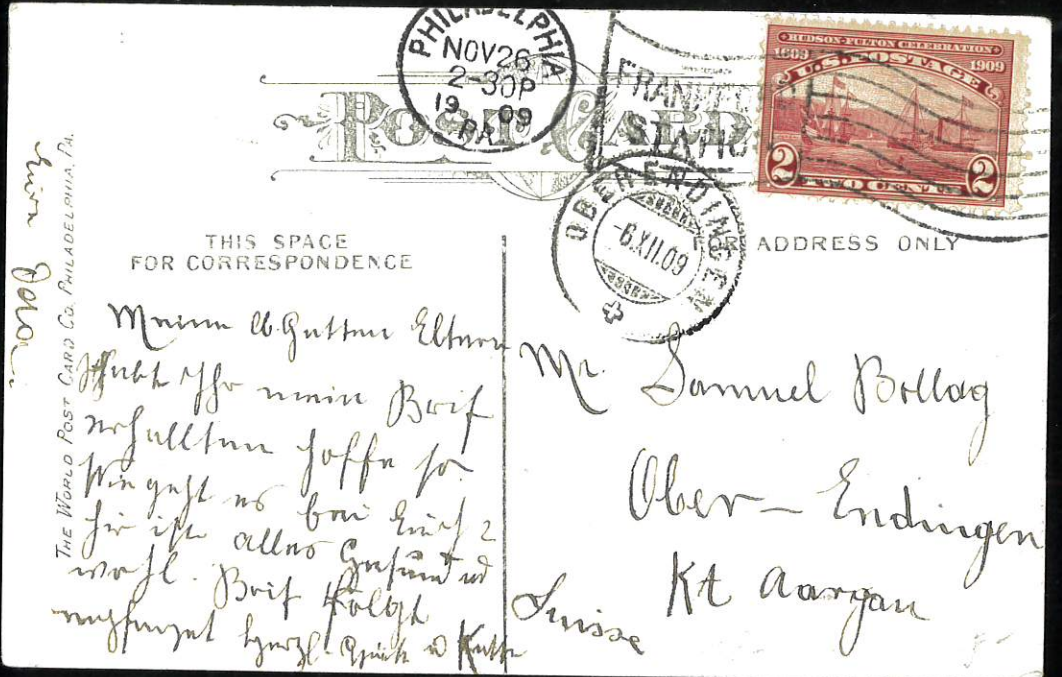 PHILADELPHIA
NOV 26
2-30P
1909
PA.
STATIO
HUDSON-FULTON CELEBRATION
1609 1909
U.S. POSTAGE
2 TWO CENTS 2
POST CARD
OBERENDINGEN
-6.XII.09
THIS SPACE
FOR CORRESPONDENCE
FOR ADDRESS ONLY
THE WORLD POST CARD CO. PHILADELPHIA, PA.
Meine lb. Gutten Eltern
Habt Ihr mein Brif
erhallten hoffe so.
Wie geht es bei Euch?
hir ist alles Gesund und
wohl. Brif folgt
empfanget herzl. Grüße u Küße
Eure
Mr. Samuel Bollag
Ober-Endingen
Kt Aargau
Suisse